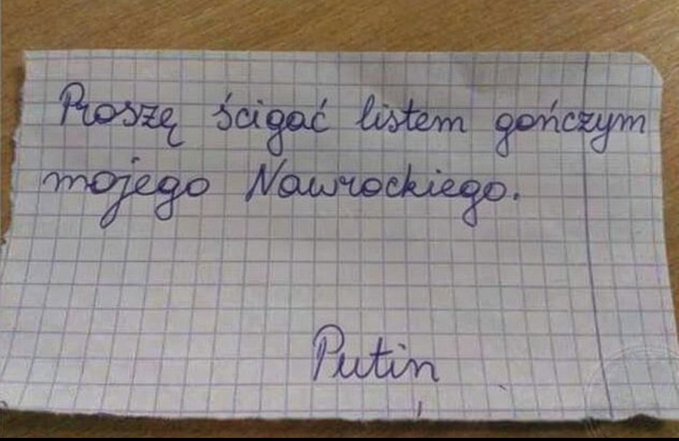 Proszę ścigać listem gończym
mojego Nawrockiego.
Putin